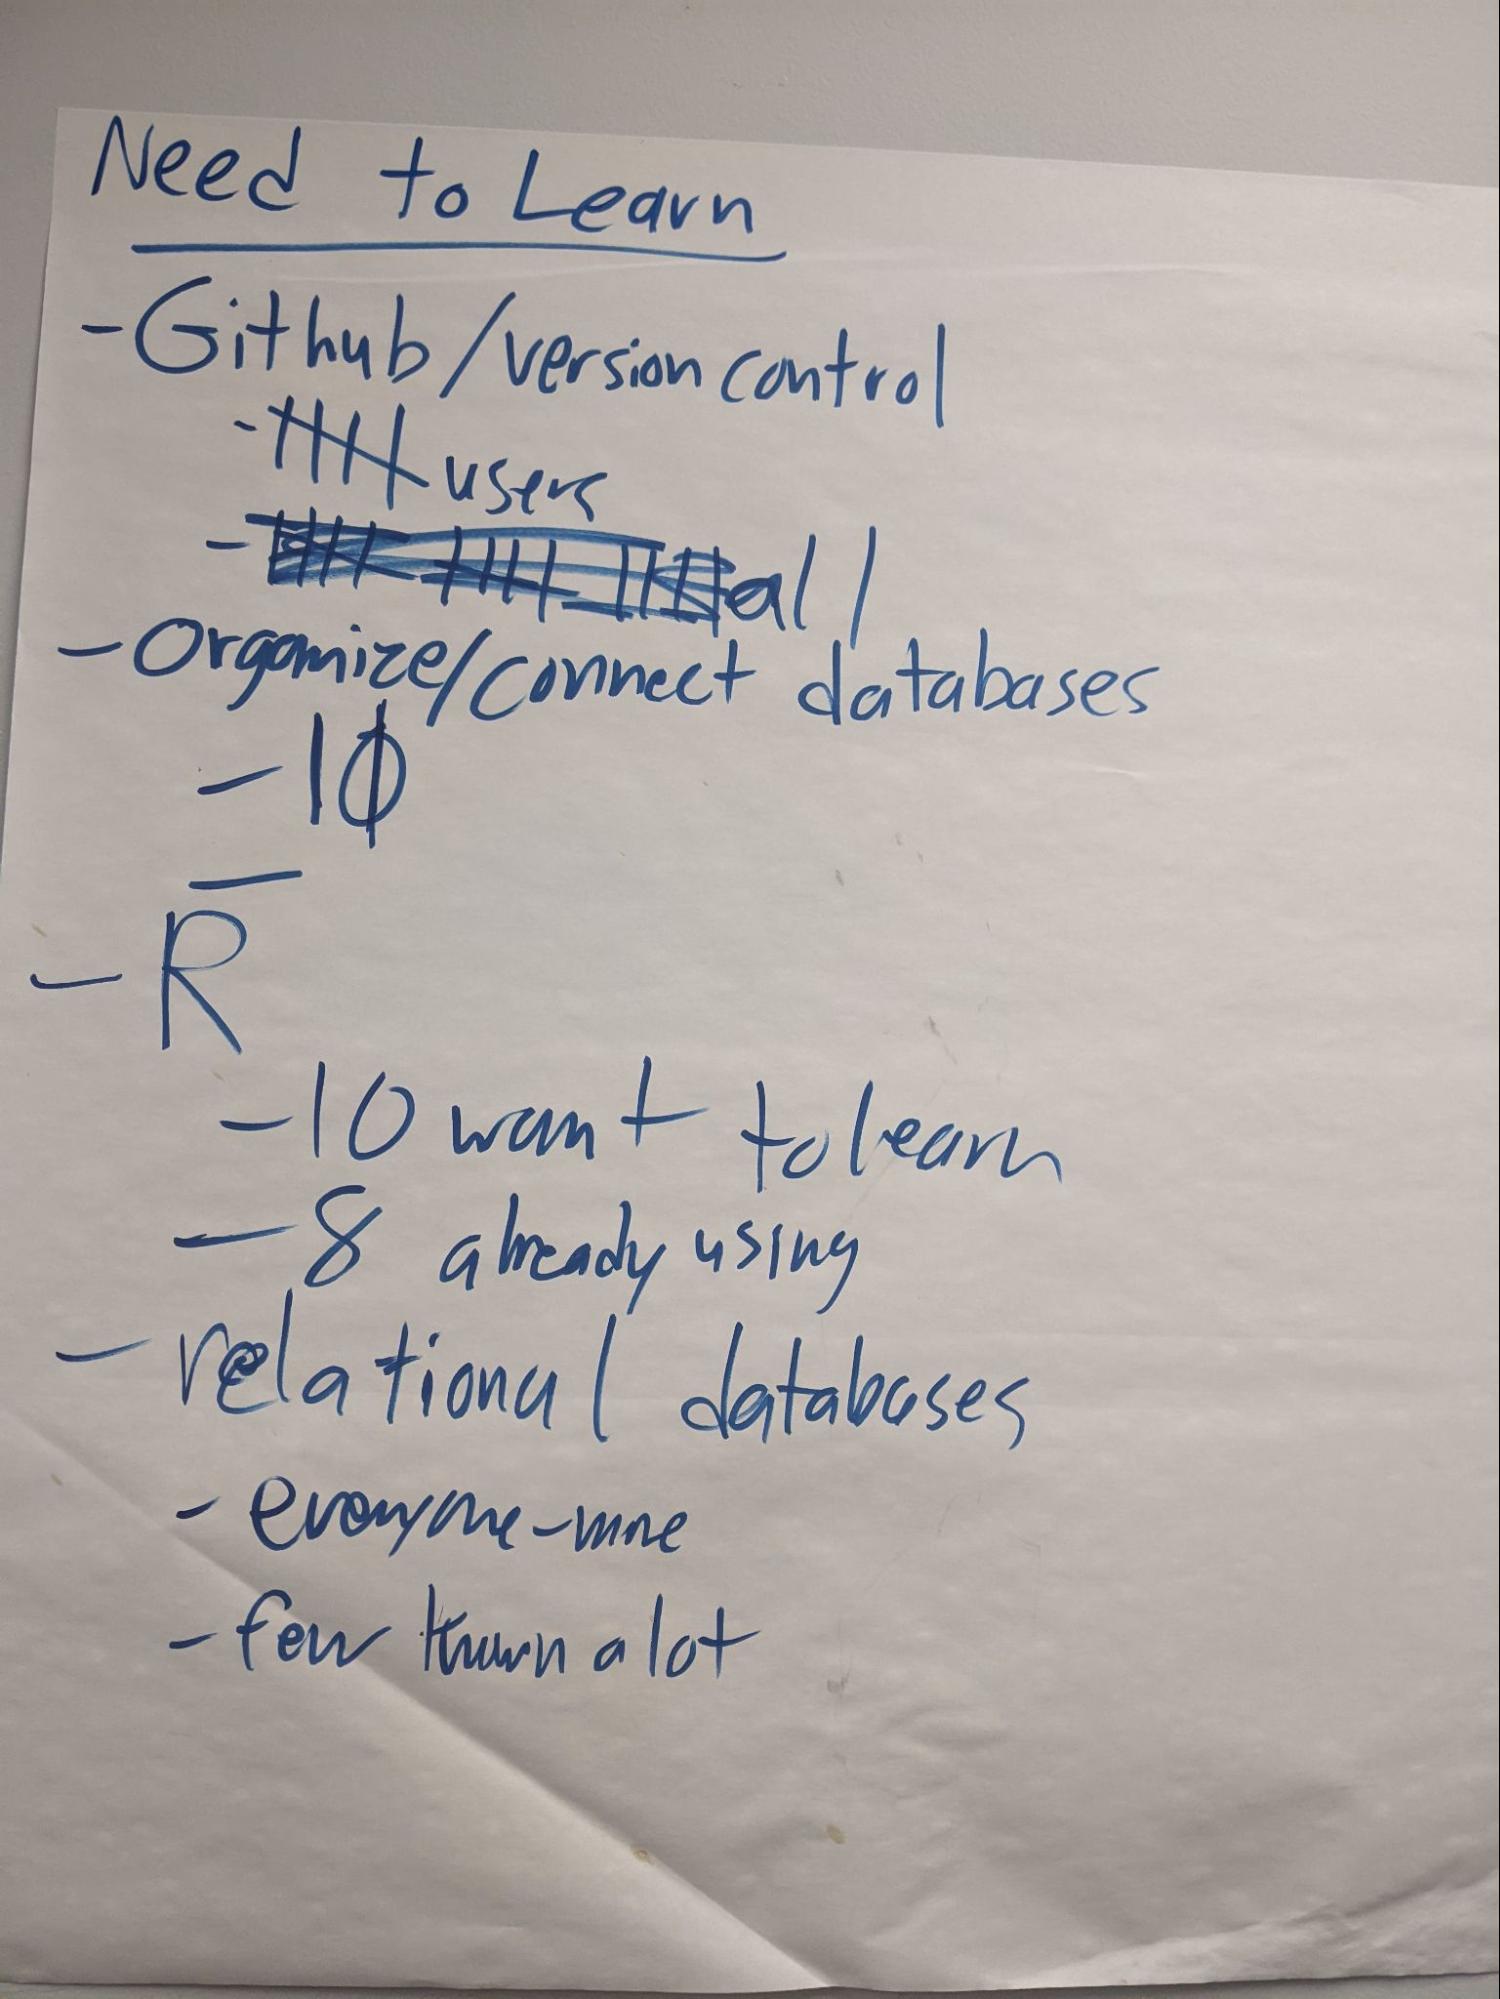 Need to Learn
- Github/version control
- 𝍸 users
- all
- Organize/connect databases
- 10
-
- R
- 10 want to learn
- 8 already using
- relational databases
- everyone -
- few known a lot